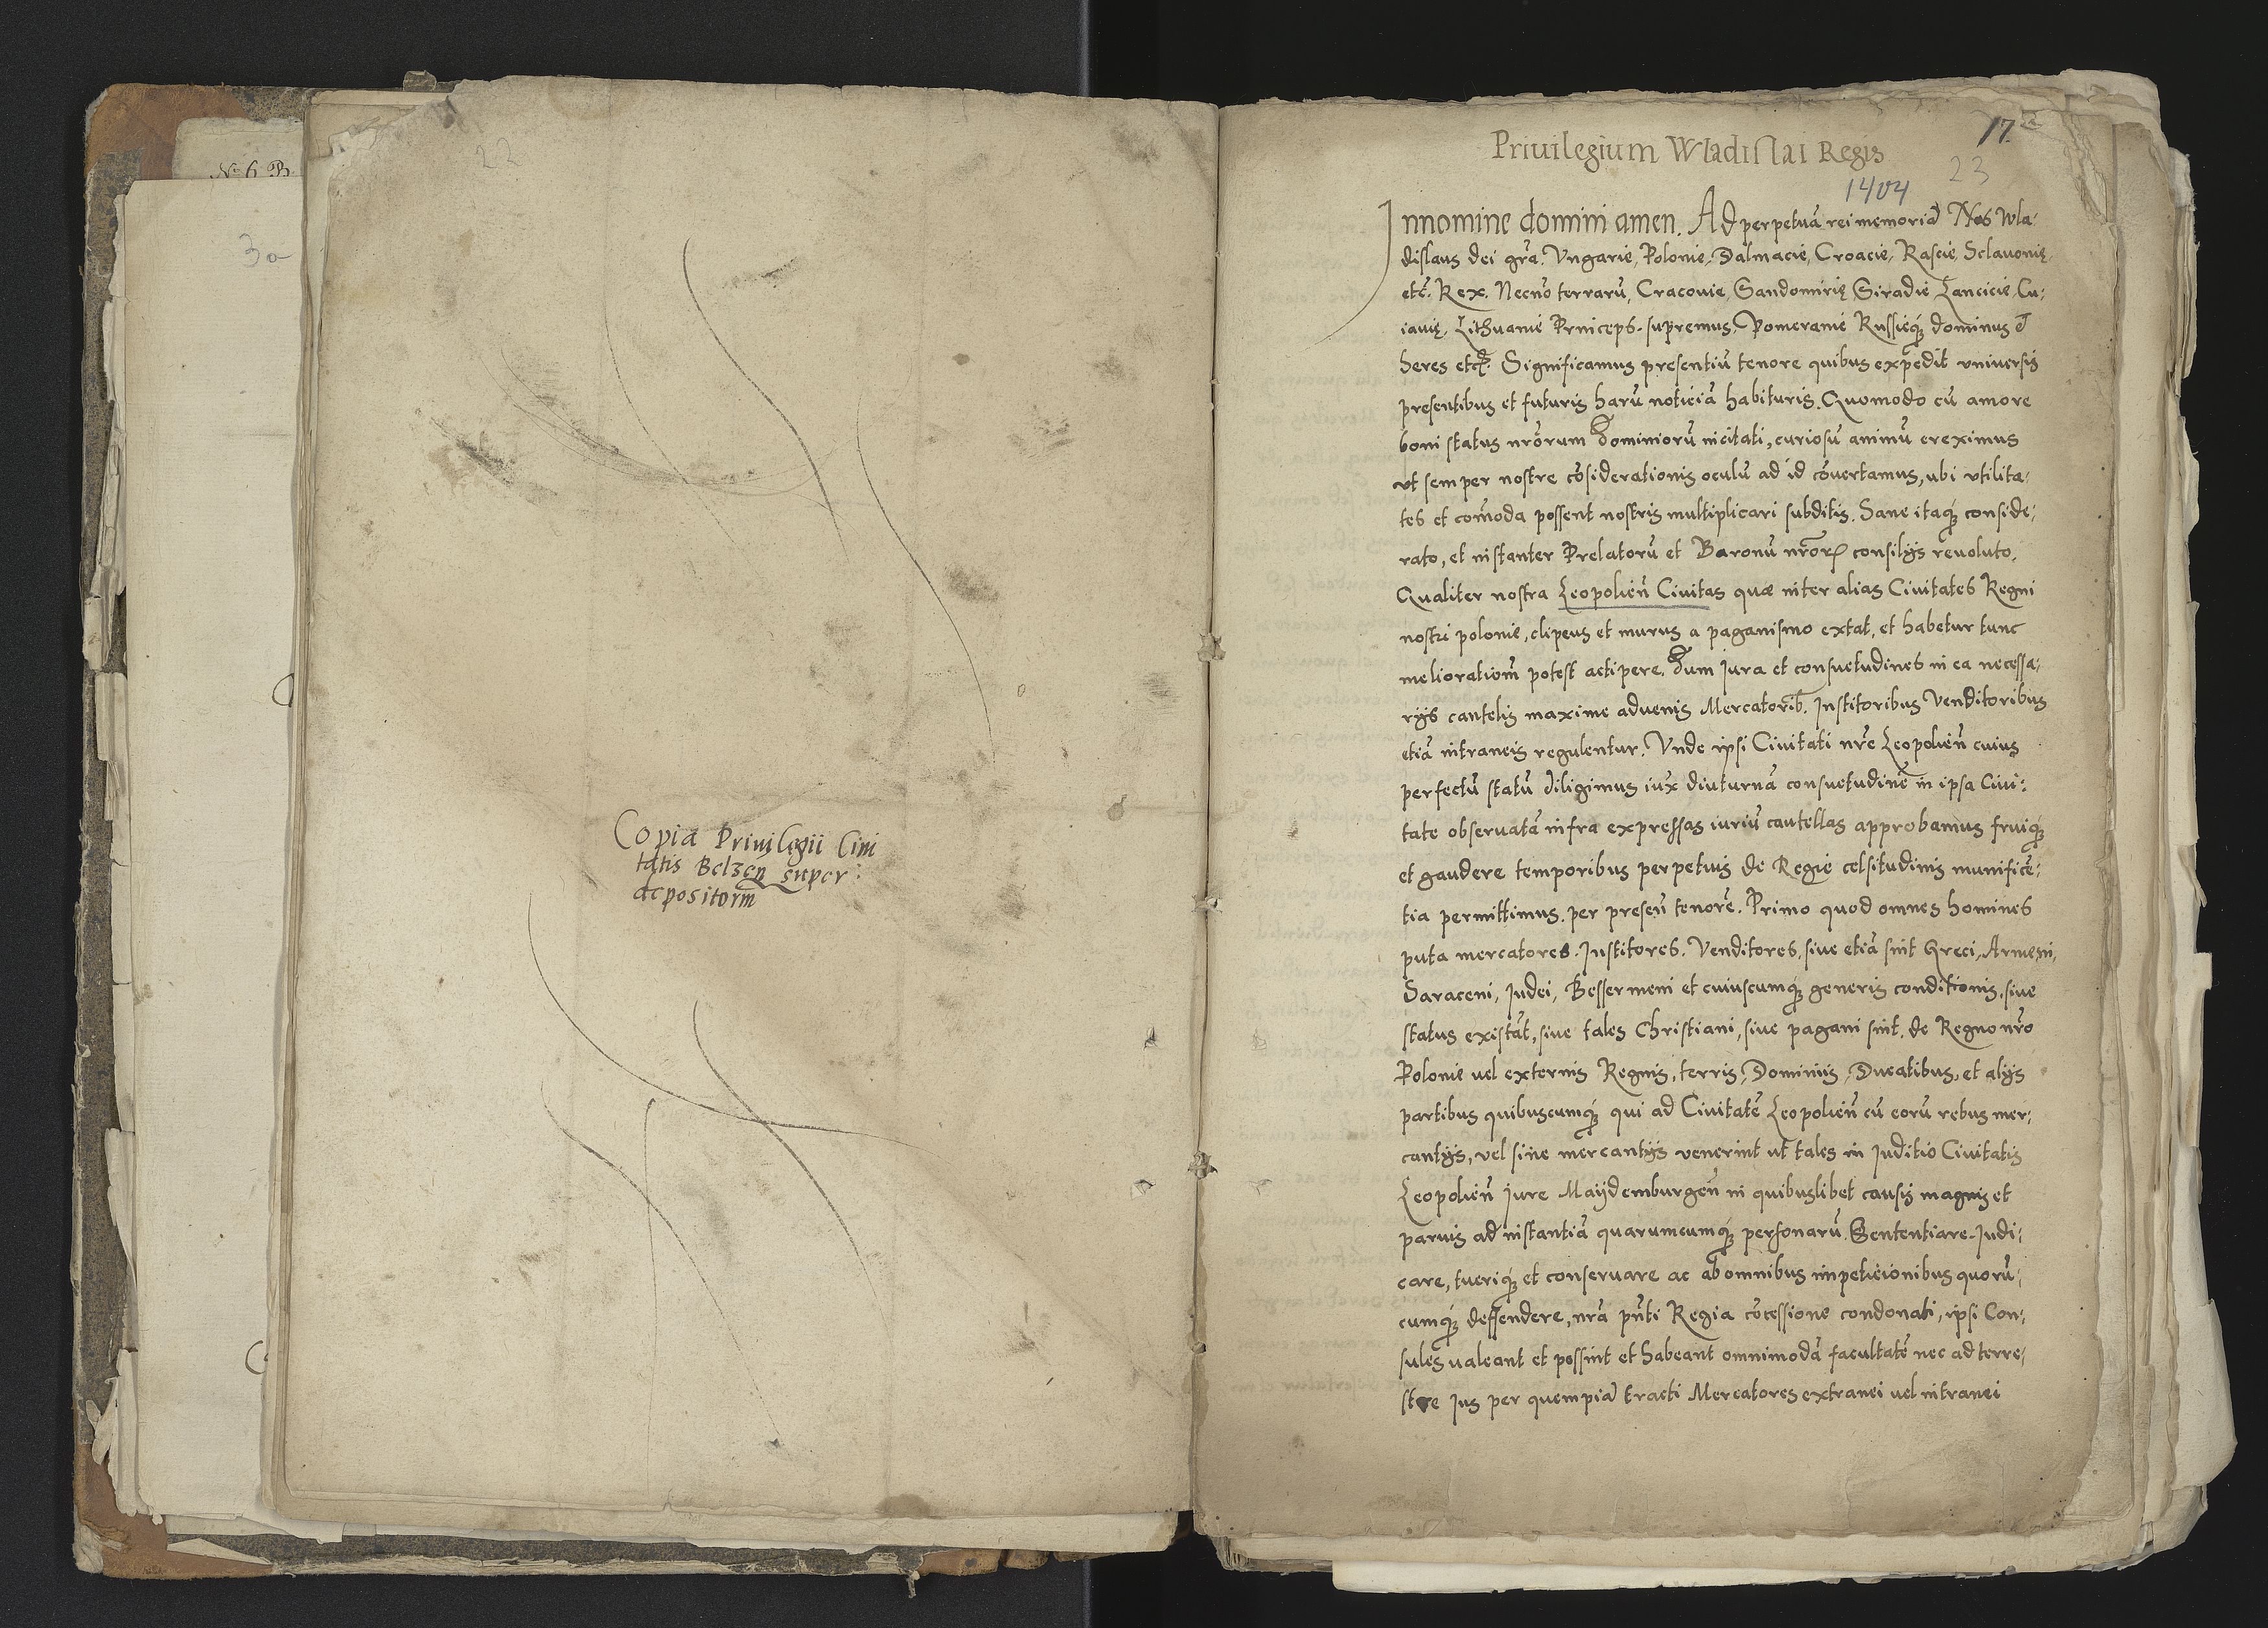 N: 6 B.
3a
22
Copia Privilegii Civi
tatis Belzen super:
depositorm̄
17.
Priuilegium Wladislai Regis
23
1404
Innomine domini amen. Ad perpetuā rei memoriā Nos Wla-
dislaus dei gr̄a. Vngarie, Polonie, Dalmacie, Croacie, Rascie, Sclauonię.
etc̄. Rex. Necnō terrarū, Cracouie, Sandomirię, Siradie, Lancicie, Cu-
iauię, Lithuanie Princeps supremus, Pomeranie Russieq; dominus et
heres etc̄. Significamus presentiū tenore quibus expedit vniuersis
presentibus et futuris harū noticiā habituris. Quomodo cū amore
boni status nrōrum Dominiorū incitati, curiosū animū ereximus
vt semper nostre cōsiderationis oculū ad id cōuertamus, ubi vtilita-
tes et com̄oda possent nostris multiplicari subditis. Sane itaq; conside-
rato, et instanter Prelatorū et Baronū nrōrꝝ consilÿs reuoluto,
Qualiter nostra Leopolien̄ Ciuitas quæ inter alias Ciuitates Regni
nostri polonie, clipeus et murus a paganismo extat, et habetur tunc
meliorationē potest accipere. Dum jura et consuetudines in ea necessa-
rÿs cautelis maxime aduenis Mercatorib. Institoribus Venditoribus
etiā intraneis regulentur. Vnde ipsi Ciuitati nrē Leopolien̄ cuius
perfectū statū diligimus iux̄ diuturnā consuetudinē in ipsa Ciui-
tate obseruatā infra expressas iuriū cautellas approbamus fruiq;
et gaudere temporibus perpetuis de Regie celsitudinis munificē-
tia permittimus. per presen̄ tenorē. Primo quod omnes homines
puta mercatores. Institores. Venditores. siue etiā sint Greci, Armeni,
Saraceni, Judei, Bessermeni et cuiuscumq; generis conditionis. siue
status existāt, siue tales Christiani, siue pagani sint, de Regno nrō
Polonie uel externis Regnis, terris, Dominiis, Ducatibus, et alÿs
partibus quibuscumq; qui ad Ciuitatē Leopolien̄ cū eorū rebus mer-
cantÿs, vel sine mercantÿs venerint ut tales in Juditio Ciuitatis
Leopolien̄ jure Maÿdemburgen̄ in quibuslibet causis magnis et
paruis ad instantiā quarumcumq; personarū. Sententiare Judi-
care, tueriq; et conseruare ac ab omnibus impeticionibus quorū-
cumq; deffendere, nrā pn̄ti Regia cōcessione condonati, ipsi Con-
sules ualeant et possint et habeant omnimodā facultatē nec ad terre-
stre Jus per quempiā tracti Mercatores extranei uel intranei